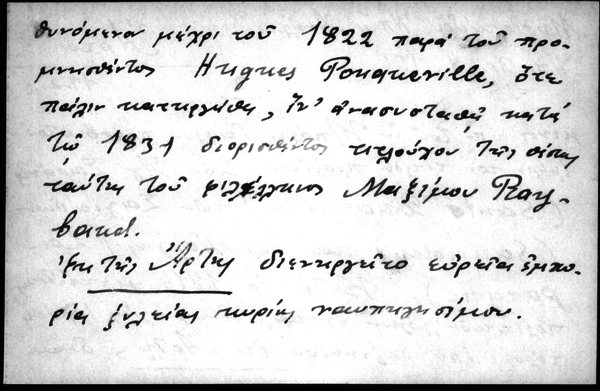 θυνόμενον μέχρι τοῦ 1822 παρὰ τοῦ προ-
μνησθέντος Hugues Pouqueville, ὅτε
πάλιν κατηργήθη, ἵν' ἀνασυσταθῇ κατὰ
τὸ 1831 διορισθέντος τιτλούχου τῆς θέσης
ταύτης τοῦ φιλέλληνος Μαξίμου Ray-
baud.
Ἐκ τῆς Ἄρτης διενηργεῖτο εὐρεῖα ἐμπο-
ρία ξυλείας κυρίως ναυπηγησίμου.